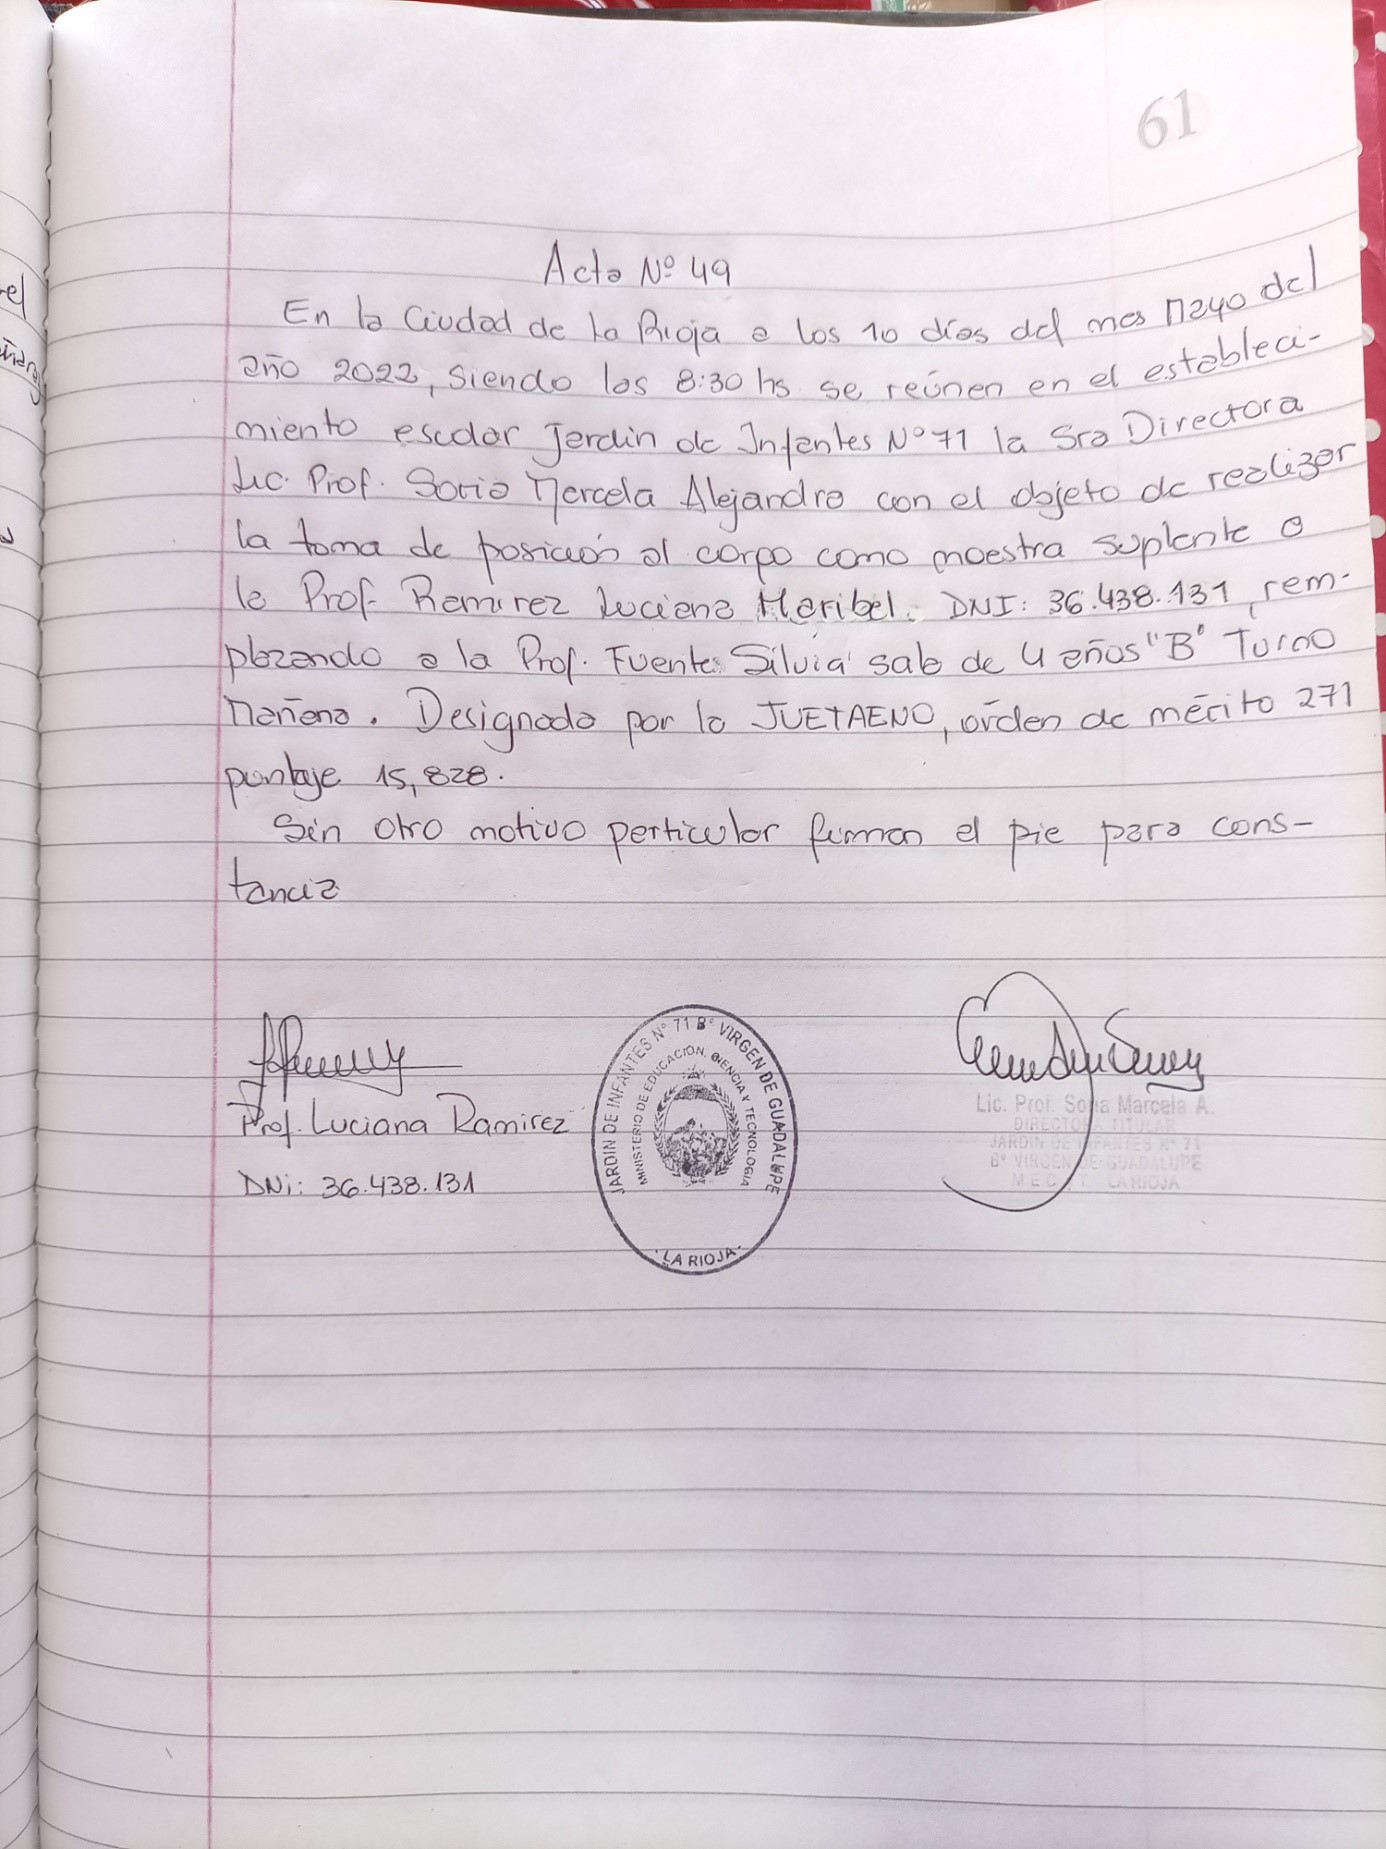 61
Acta Nº 49
En la Ciudad de La Rioja a los 10 días del mes Mayo del
año 2022, siendo las 8:30 hs se reúnen en el estableci-
miento escolar Jardin de Infantes Nº 71 la Sra Directora
Lic. Prof. Marcela Alejandra con el objeto de realizar
la toma de posición al carpo como maestra suplente a
la Prof. Ramirez Luciana Maribel. DNI: 36.438.131, rem-
plazando a la Prof. Fuentes Silvia sala de 4 años "B" Turno
Mañana. Designada por la JUETAENO, orden de mérito 271
puntaje 15,828.
Sin otro motivo particular firman al pie para cons-
tancia
Prof. Luciana Ramirez
DNi: 36.438.131
JARDIN DE INFANTES Nº 71 Bº VIRGEN DE GUADALUPE
MINISTERIO DE EDUCACIÓN, CIENCIA Y TECNOLOGIA
- LA RIOJA -
Lic. Prof. Marcela A.
DIRECTORA TITULAR
JARDIN DE INFANTES Nº 71
Bº VIRGEN DE GUADALUPE
LA RIOJA
el